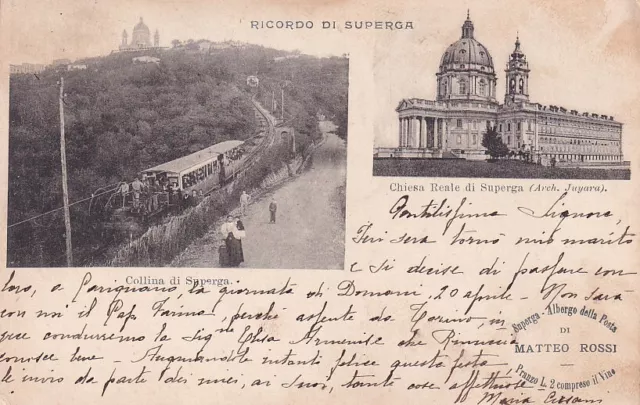 RICORDO DI SUPERGA
Chiesa Reale di Superga (Arch. Juvara).
Collina di Superga.
Gentilissima Signora,
Ieri sera tornò mio marito
e si decise di passare con
loro, a Carignano, la giornata di Domani, 20 aprile - Non sarà
con noi il perchè assente da Torino, in
vece condurremo la Sig.ne Elsa che
conosce bene - Augurandole intanti felice questa festa,
le invio da parte dei miei, ai Suoi, tante cose affettuose -
Maria
Superga - Albergo della Posta
DI
MATTEO ROSSI
Pranzo L. 2 compreso il Vino